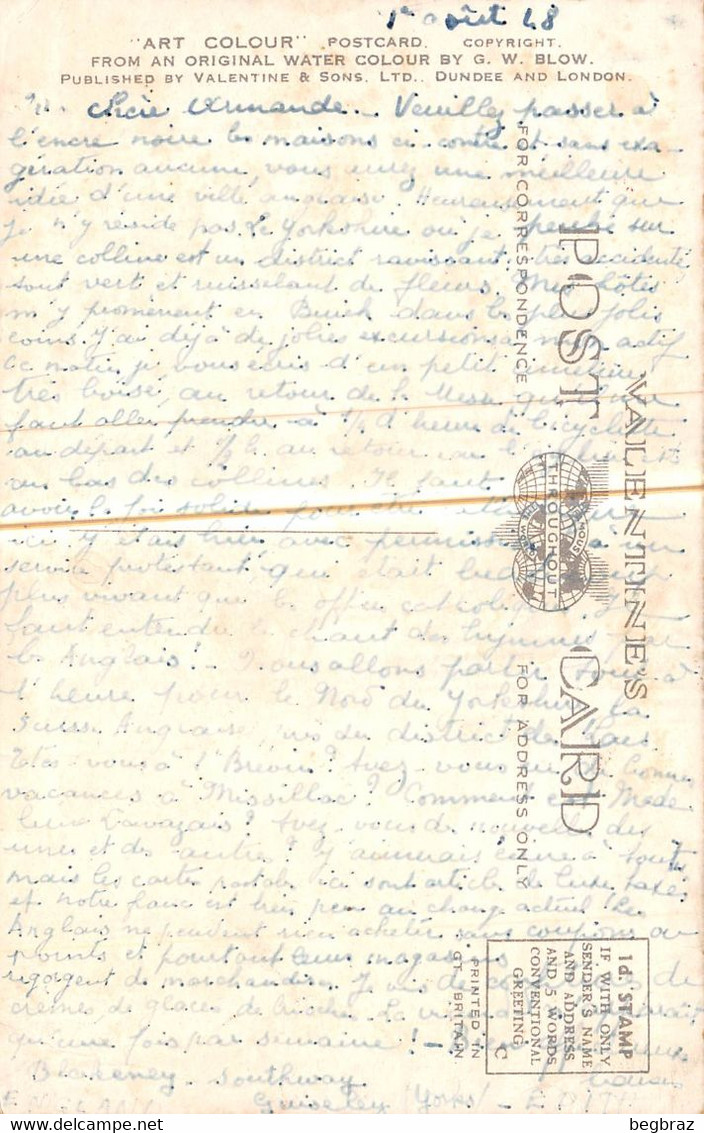 1er août 48
"ART COLOUR" POSTCARD. COPYRIGHT.
FROM AN ORIGINAL WATER COLOUR BY G. W. BLOW.
PUBLISHED BY VALENTINE & SONS, LTD., DUNDEE AND LONDON.
Chère Armande. Veuillez passer à
l'encre noire les maisons ci contre et sans exa
gération aucune, vous aurez une meilleure
idée d'une ville anglaise. Heureusement que
je n'y réside pas. Le Yorkshire où je perche sur
une colline est un district ravissant, très accidenté
tout vert et ruisselant de fleurs. Mes hôtes
m'y promènent en Buick dans les plus jolis
coins. J'ai déjà de jolies excursions à mon actif
Ce matin je vous écris d'un petit
très boisé, au retour de la Messe qu'il me
faut aller prendre à 1/4 d'heure de bicyclette
au départ et 1/2 h. au retour car l'
au bas des collines. Il faut
avoir la foi solide pour être
ici. J'y étais hier avec permission à un
service protestant qui était
plus vivant que les offices catholiques. Il
faut entendre le chant des hymnes par
les Anglais! - Nous allons partir tout à
l'heure pour le Nord du Yorkshire, la
Suisse Anglaise, près du district des Lacs
Êtes-vous à St Brévin? Avez-vous eu de bonnes
vacances à Missillac? Comment est Made
leine? Avez-vous de nouvelles des
unes et des autres? J'aimerais écrire à toutes
mais les cartes postales ici sont article de luxe taxé
et notre franc est très peu au change actuel. Les
Anglais ne peuvent rien acheter sans coupons ou
points et pourtant leurs magasins
regorgent de marchandises. Je vis de
crèmes de glaces de brioches. La
qu'une fois par semaine! -
Blakeney Southway
Guiseley (Yorks)
VALENTINE'S
POST CARD
FAMOUS THROUGHOUT THE WORLD
FOR CORRESPONDENCE
FOR ADDRESS ONLY
PRINTED IN
GT. BRITAIN.
1d. STAMP
IF WITH ONLY
SENDER'S NAME
AND ADDRESS
AND 5 WORDS
CONVENTIONAL
GREETING
C
begbraz